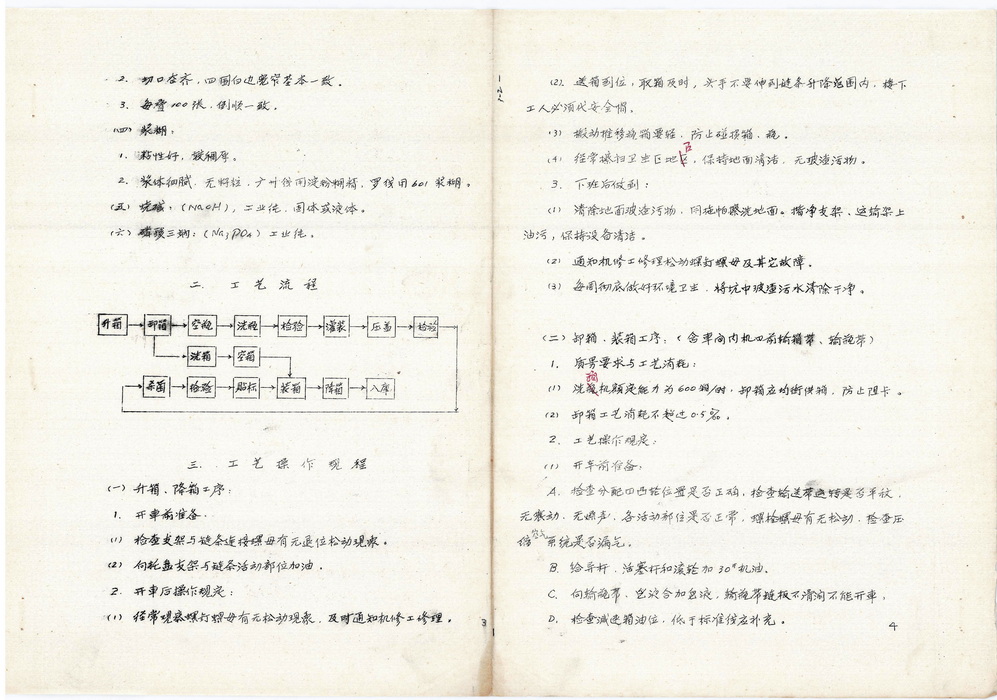 2. 切口整齐，四周白边宽窄基本一致。
3. 每叠100张，倒顺一致。
(四) 浆糊：
1. 粘性好，较稠厚。
2. 浆体细腻，无粒，广州啤用淀粉糊精，罗馒用601浆糊。
(五) 烧碱：(NaOH)，工业纯，固体或液体。
(六) 磷酸三钠：(Na3PO4) 工业纯。
二. 工艺流程
升箱 卸箱 空瓶 洗瓶 检验 灌装 压盖 检验
洗箱 空箱
杀菌 检验 贴标 装箱 降箱 入库
三. 工艺操作规程
(一) 升箱、降箱工序：
1. 开车前准备
(1) 检查支架与链条连接螺母有无退位松动现象。
(2) 向托盘支架与链条活动部位加油。
2. 开车后操作规定：
(1) 经常观察螺钉螺母有无松动现象，及时通知机修工修理。
3
(2) 送箱到位，取箱及时，头手不要伸到链条升降范围内，楼下
工人必须代安全帽。
(3) 搬动推移瓶箱要轻，防止碰损箱、瓶。
(4) 经常擦扫卫生区地区，保持地面清洁，无玻渣污物。
3. 下班后做到：
(1) 清除地面玻渣污物，用拖帕曝洗地面。揩净支架、运输架上
油污，保持设备清洁。
(2) 通知机修工修理松动螺钉螺母及其它故障。
(3) 每周彻底做好环境卫生，将坑中玻渣污水清除干净。
(二) 卸箱、装箱工序：(含车间内机四前输箱带、输瓶带)
1. 质量要求与工艺消耗：
(1) 洗瓶机额定能力为600箱/时，卸箱应均衡供箱，防止阻卡。
(2) 卸箱工艺消耗不超过0.5%。
2. 工艺操作规定：
(1) 开车前准备：
A. 检查分配凹凸轮位置是否正确，检查输送带运转是否平纹，
无震动、无噪声，各活动部位是否正常，螺栓螺母有无松动，检查压
缩空气系统是否漏气。
B. 给导杆、活塞杆和滚轮加30#机油。
C. 向输瓶带，皂液合加皂液，输瓶带链板不滑润不能开车，
D. 检查减速箱油位，低于标准线应补充。
4